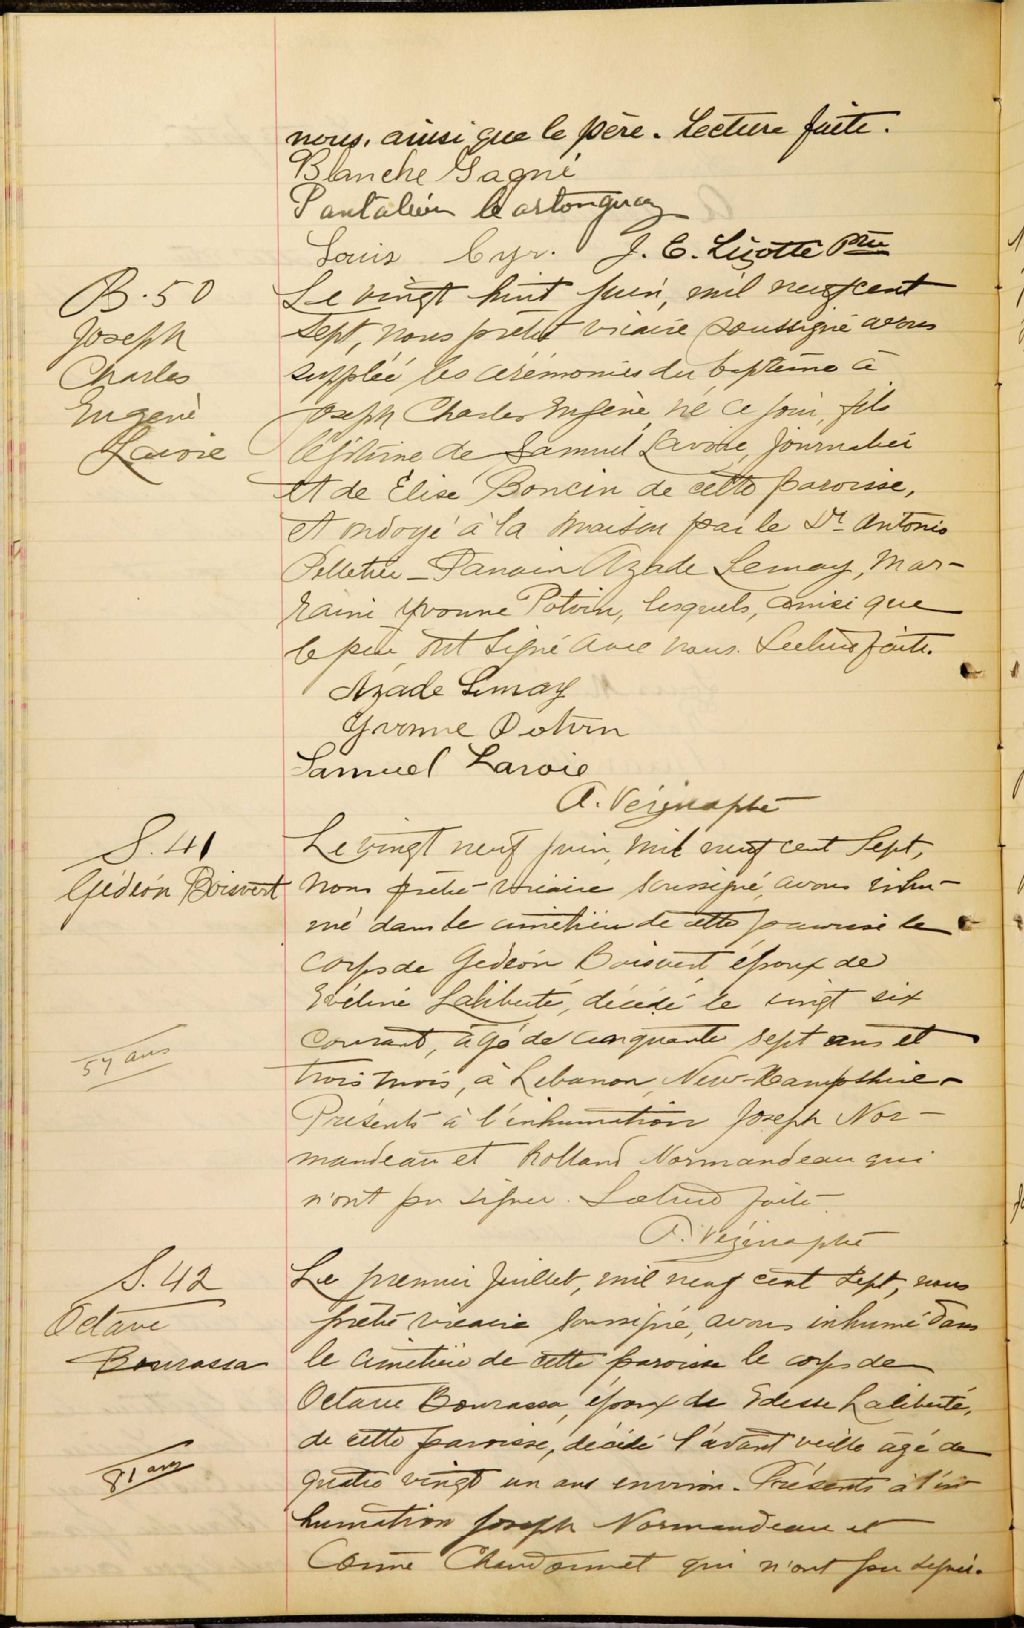 nous, ainsi que le père. Lecture faite.
Blanche Gagné
Pantaléon Lartonguay
Louis Cyr. J. E. Lizotte Ptre
B. 50
Joseph
Charles
Eugène
Lavoie
Le vingt huit juin, mil neuf cent
sept, nous prêtre vicaire soussigné avons
suppléé les cérémonies du baptême à
Joseph Charles Eugène, né ce jour, fils
légitime de Samuel Lavoie, journalier
et de Élise Boncin de cette paroisse,
et ondoyé à la maison par le Dr Antonio
Pelletier – Parrain Azade Lemay, Mar-
raine Yvonne Potvin, lesquels, ainsi que
le père, ont signé avec nous. Lecture faite.
Azade Lemay
Yvonne Potvin
Samuel Lavoie
A. Vézina ptre
S. 41
Gédéon Boisvert
57 ans
Le vingt neuf juin, mil neuf cent sept,
nous prêtre-vicaire soussigné, avons inhu-
mé dans le cimetière de cette paroisse le
corps de Gédéon Boisvert, époux de
Evéline Laliberté, décédé le vingt six
courant, âgé de cinquante sept ans et
trois mois, à Lebanon, New-Hampshire.
Présents à l'inhumation Joseph Nor-
mandeau et Rolland Normandeau qui
n'ont pu signer. Lecture faite.
A. Vézina ptre
S. 42
Octave
Bourassa
81 ans
Le premier Juillet, mil neuf cent sept, nous
prêtre vicaire soussigné, avons inhumé dans
le cimetière de cette paroisse le corps de
Octave Bourassa, époux de Edesse Laliberté,
de cette paroisse, décédé l'avant veille âgé de
quatre vingt un ans environ. Présents à l'in
humation Joseph Normandeau et
Come Chandonnet qui n'ont pu signer.